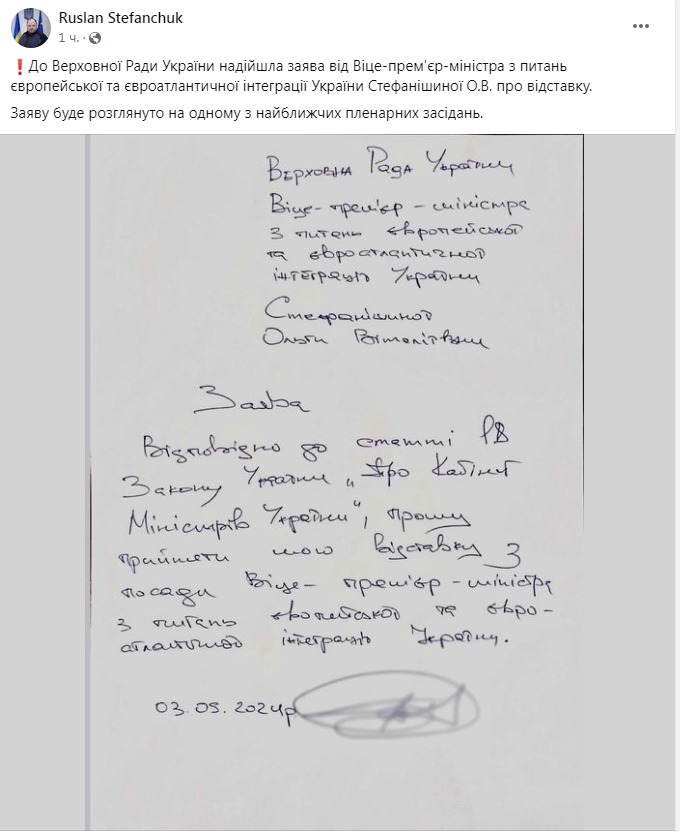 Ruslan Stefanchuk
1 ч.
❗До Верховної Ради України надійшла заява від Віце-прем'єр-міністра з питань
європейської та євроатлантичної інтеграції України Стефанішиної О.В. про відставку.
Заяву буде розглянуто на одному з найближчих пленарних засідань.
Верховна Рада України
Віце-премієр-міністра
з питань європейської
та євроатлантичної
інтеграції України
Стефанішиної
Ольги Віталіївни
Заява
Відповідно до статті 18
Закону України „Про Кабінет
Міністрів України", прошу
прийняти мою відставку з
посади Віце-премієр-міністра
з питань європейської та євро-
атлантичної інтеграції України.
03.09.2024р